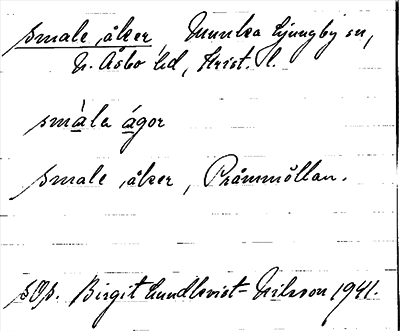 smale åker, Munka Ljungby sn,
N. Åsbo hd, Krist. l.
småla ágor
smale åker, Pråmmöllan.
SOp. Birgit Lundkvist-Nilsson 1941.